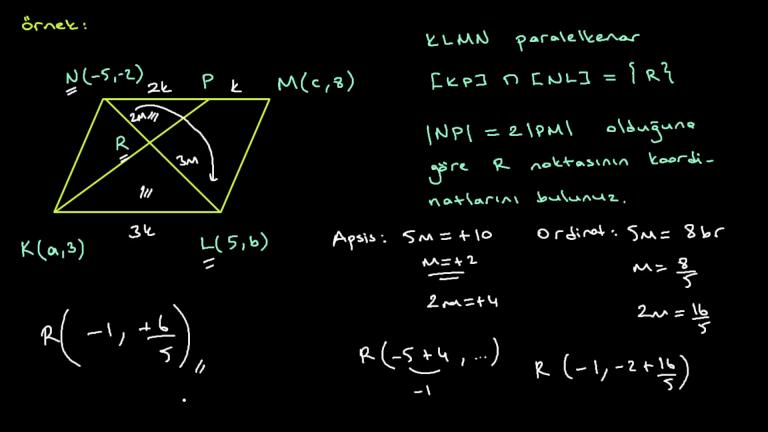 örnek:
N(-5,-2)
2k
P
k
M(c,8)
2m
R
3m
3k
K(a,3)
L(5,b)
KLMN paralelkenar
[KP] ∩ [NL] = {R}
|NP| = 2|PM| olduğuna
göre R noktasının koordi-
natlarını bulunuz.
Apsis: 5m = +10
m = +2
2m = +4
R(-5+4, ...)
-1
Ordinat: 5m = 8br
m = 8/5
2m = 16/5
R(-1, -2+16/5)
R(-1, +6/5)